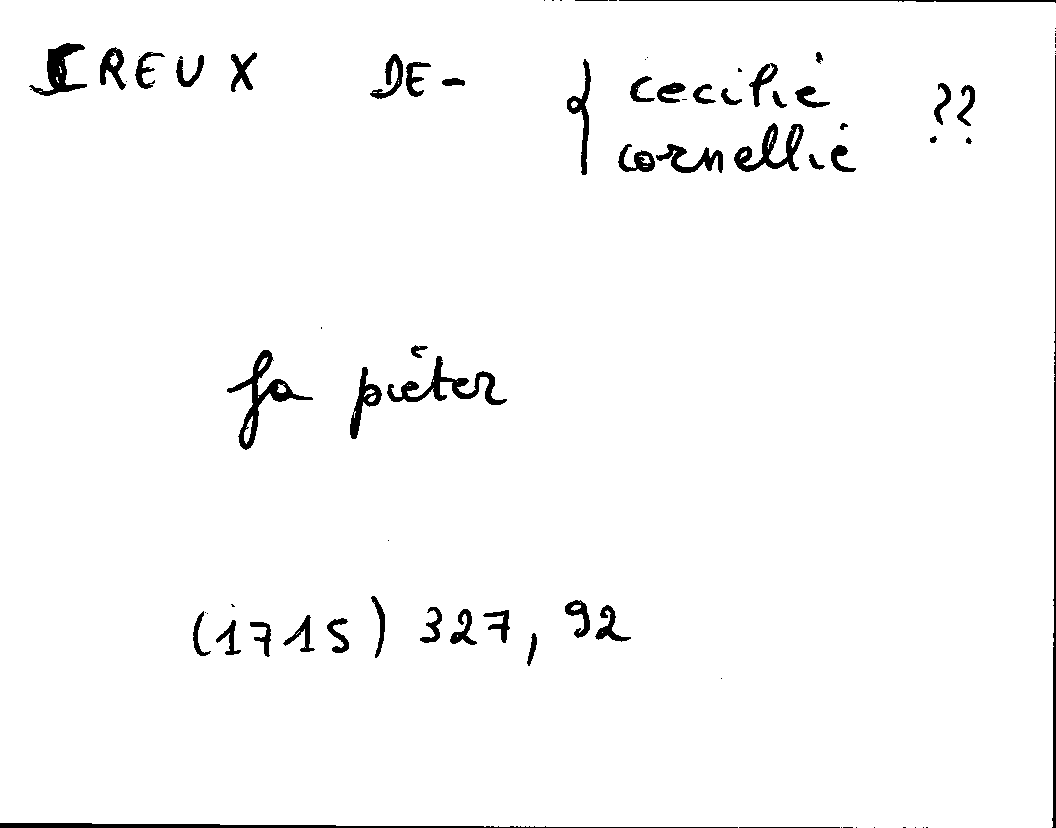 CREUX DE- { cecilie ??
cornellie
fa pieter
(1715) 327, 92